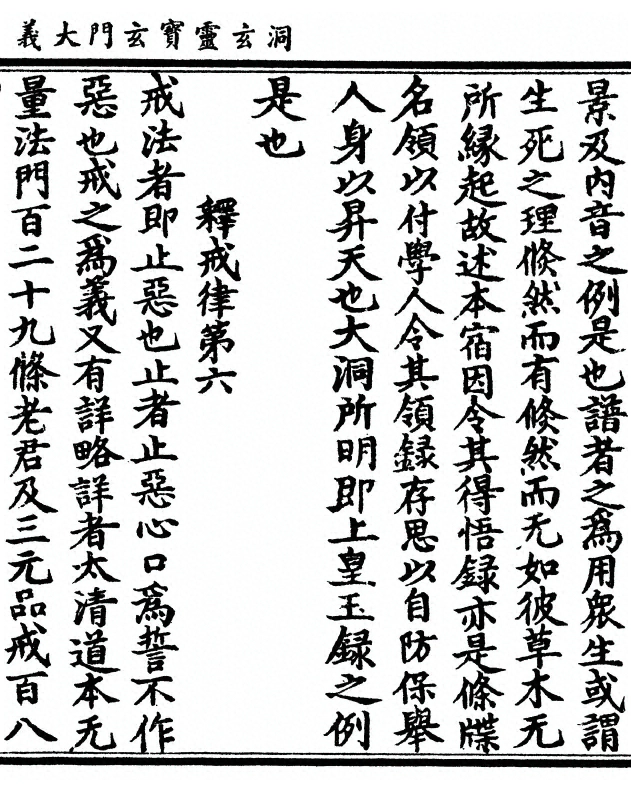 洞玄靈寶玄門大義
景及內音之例是也譜者之爲用衆生或謂
生死之理倐然而有倐然而无如彼草木无
所縁起故述本宿因令其得悟録亦是條牒
名領以付學人令其領録存思以自防保舉
人身以昇天也大洞所明即上皇玉録之例
是也
釋戒律第六
戒法者即止惡也止者止惡心口爲誓不作
惡也戒之爲義又有詳略詳者太清道本无
量法門百二十九條老君及三元品戒百八